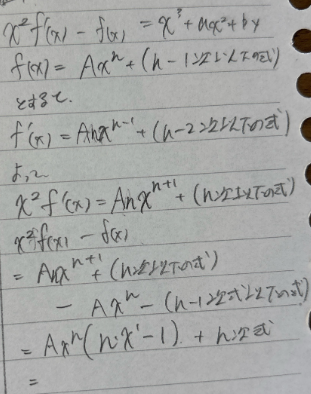 x²f'(x) - f(x) = x³ + ax² + bx
f(x) = Axⁿ + (n-1次以下の式)
とすると、
f'(x) = Anxⁿ⁻¹ + (n-2次以下の式)
よって
x²f'(x) = Anxⁿ⁺¹ + (n次以下の式)
x²f'(x) - f(x)
= Anxⁿ⁺¹ + (n次以下の式)
- Axⁿ - (n-1次式以下の式)
= Axⁿ(n·x¹-1) + n次式
=